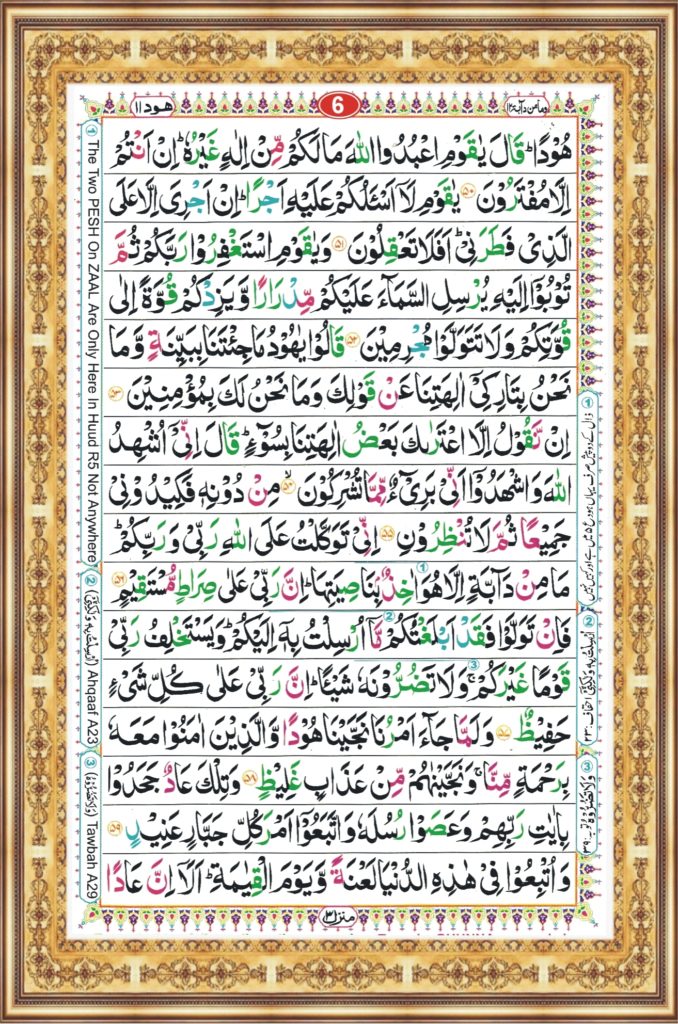 هود ١١
6
وما من دآبة ١٢
هُوْدًا ؕ قَالَ یٰقَوْمِ اعْبُدُوا اللّٰهَ مَا لَكُمْ مِّنْ اِلٰهٍ غَیْرُهٗ ؕ اِنْ اَنْتُمْ
اِلَّا مُفْتَرُوْنَ ﴿۵۰﴾ یٰقَوْمِ لَاۤ اَسْـَٔلُكُمْ عَلَیْهِ اَجْرًا ؕ اِنْ اَجْرِیَ اِلَّا عَلَی
الَّذِیْ فَطَرَنِیْ ؕ اَفَلَا تَعْقِلُوْنَ ﴿۵۱﴾ وَیٰقَوْمِ اسْتَغْفِرُوْا رَبَّكُمْ ثُمَّ
تُوْبُوْۤا اِلَیْهِ یُرْسِلِ السَّمَآءَ عَلَیْكُمْ مِّدْرَارًا وَّیَزِدْكُمْ قُوَّةً اِلٰی
قُوَّتِكُمْ وَلَا تَتَوَلَّوْا مُجْرِمِیْنَ ﴿۵۲﴾ قَالُوْا یٰهُوْدُ مَا جِئْتَنَا بِبَیِّنَةٍ وَّمَا
نَحْنُ بِتَارِكِیْۤ اٰلِهَتِنَا عَنْ قَوْلِكَ وَمَا نَحْنُ لَكَ بِمُؤْمِنِیْنَ ﴿۵۳﴾
اِنْ نَّقُوْلُ اِلَّا اعْتَرٰىكَ بَعْضُ اٰلِهَتِنَا بِسُوْٓءٍ ؕ قَالَ اِنِّیْۤ اُشْهِدُ
اللّٰهَ وَاشْهَدُوْۤا اَنِّیْ بَرِیْٓءٌ مِّمَّا تُشْرِكُوْنَ ﴿۵۴﴾ مِنْ دُوْنِهٖ فَكِیْدُوْنِیْ
جَمِیْعًا ثُمَّ لَا تُنْظِرُوْنِ ﴿۵۵﴾ اِنِّیْ تَوَكَّلْتُ عَلَی اللّٰهِ رَبِّیْ وَرَبِّكُمْ ؕ
مَا مِنْ دَآبَّةٍ اِلَّا هُوَ اٰخِذٌۢ ① بِنَاصِیَتِهَا ؕ اِنَّ رَبِّیْ عَلٰی صِرَاطٍ مُّسْتَقِیْمٍ ﴿۵۶﴾
فَاِنْ تَوَلَّوْا فَقَدْ اَبْلَغْتُكُمْ مَّاۤ ② اُرْسِلْتُ بِهٖۤ اِلَیْكُمْ ؕ وَیَسْتَخْلِفُ رَبِّیْ
قَوْمًا غَیْرَكُمْ ۚ ③ وَلَا تَضُرُّوْنَهٗ شَیْـًٔا ؕ اِنَّ رَبِّیْ عَلٰی كُلِّ شَیْءٍ
حَفِیْظٌ ﴿۵۷﴾ وَلَمَّا جَآءَ اَمْرُنَا نَجَّیْنَا هُوْدًا وَّالَّذِیْنَ اٰمَنُوْا مَعَهٗ
بِرَحْمَةٍ مِّنَّا ۚ وَنَجَّیْنٰهُمْ مِّنْ عَذَابٍ غَلِیْظٍ ﴿۵۸﴾ وَتِلْكَ عَادٌ ۙ جَحَدُوْا
بِاٰیٰتِ رَبِّهِمْ وَعَصَوْا رُسُلَهٗ وَاتَّبَعُوْۤا اَمْرَ كُلِّ جَبَّارٍ عَنِیْدٍ ﴿۵۹﴾
وَاُتْبِعُوْا فِیْ هٰذِهِ الدُّنْیَا لَعْنَةً وَّیَوْمَ الْقِیٰمَةِ ؕ اَلَاۤ اِنَّ عَادًا
منزل ٣
① The Two PESH On ZAAL Are Only Here In Huud R5 Not Anywhere
② (اُرْسِلْتُ بِهٖ وَلٰكِنِّیْ) Ahqaaf A23
③ (وَلَا تَضُرُّوْهُ) Tawbah A29
① ذال کے دو پیش صرف یہاں ہود ع ۵ میں ہے اور کہیں نہیں
② اُرْسِلْتُ بِهٖ وَلٰكِنِّیْ احقاف: ۲۳
③ وَلَا تَضُرُّوْهُ توبہ: ۳۹